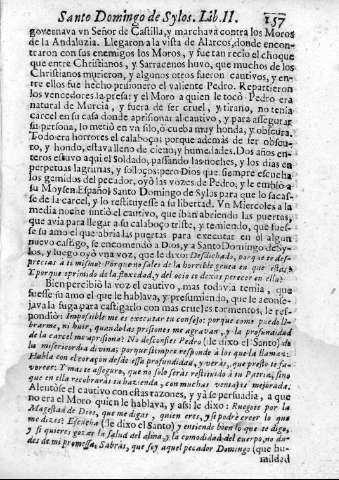 Santo Domingo de Sylos. Lib. II. 157
governava vn Señor de Castilla, y marchava contra los Moros
de la Andaluzia. Llegaron a la vista de Alarcos, donde encon-
traron con sus enemigos los Moros, y fue tan recio el choque
que entre Christianos, y Sarracenos huvo, que muchos de los
Christianos murieron, y algunos otros fueron cautivos, y en-
tre ellos fue hecho prisionero el valiente Pedro. Repartieron
los vencedores la presa: y el Moro a quien le tocò Pedro era
natural de Murcia, y fuera de ser cruel, y tirano, no tenia
carcel en su casa donde aprisionar al cautivo, y para assegurar
su persona, lo metiò en vn silo, ò cueba muy honda, y obscura.
Todo era horrores el calaboço; porque ademàs de ser obscu-
ro, y hondo, estava lleno de cieno, y humedades. Dos años en-
teros estuvo aqui el Soldado, passando las noches, y los dias en
perpetuas lagrimas, y solloços: pero Dios que siempre escucha
los gemidos del pecador, oyò las vozes de Pedro, y le embiò a
su Moysen Español Santo Domingo de Sylos para que lo sacas-
se de la carcel, y lo restituyesse a su libertad. Vn Miercoles a la
media noche sintiò el cautivo, que iban abriendo las puertas,
que avia para llegar a su calaboço triste, y temiendo, que fues-
se su amo el que abria las puertas para executar en el algun
nuevo castigo, se encomendo a Dios, y a Santo Domingo de Sy-
los, y luego oyò vna voz, que le dixo: Desdichado, porque te des-
precias a ti mismo? Porque no sales de la horrible gruta en que estàs?
Porque oprimido de la floxedad, y del ocio te dexas perecer en ella?
Bien percibiò la voz el cautivo, mas todavia temia, que
fuesse su amo el que le hablava, y presumiendo, que le aconse-
java la fuga para castigarlo con mas crueles tormentos, le res-
pondiò: Impossible me es executar tu consejo: porque como puedo li-
brarme, ni huir, quando las prisiones me agravan, y la profundidad
de la carcel me aprisiona? No desconfies Pedro (le dixo el Santo) de
la misericordia divina: porque siempre responde à los que la llaman:
Habla con el coraçon desde essa profundidad, y veràs, que presto te fa-
vorece: Y mas te asseguro, que no solo seràs restituido à tu Patria, sino
que en ella recobraràs tu hazienda, con muchas ventajas mejorada.
Alentòse el cautivo con estas razones, y yà se persuadia, a que
no era el Moro quien le hablava, y assi le dixo: Ruegote por la
Magestad de Dios, que me digas, quien eres, y si podrè creer lo que
me dizes? Escucha (le dixo el Santo) y entiende bien lo que te digo,
y si quieres gozar la salud del alma, y la comodidad del cuerpo, no du-
des de mi promessa. Sabràs, que soy aquel pecador Domingo (que hu-
mildad